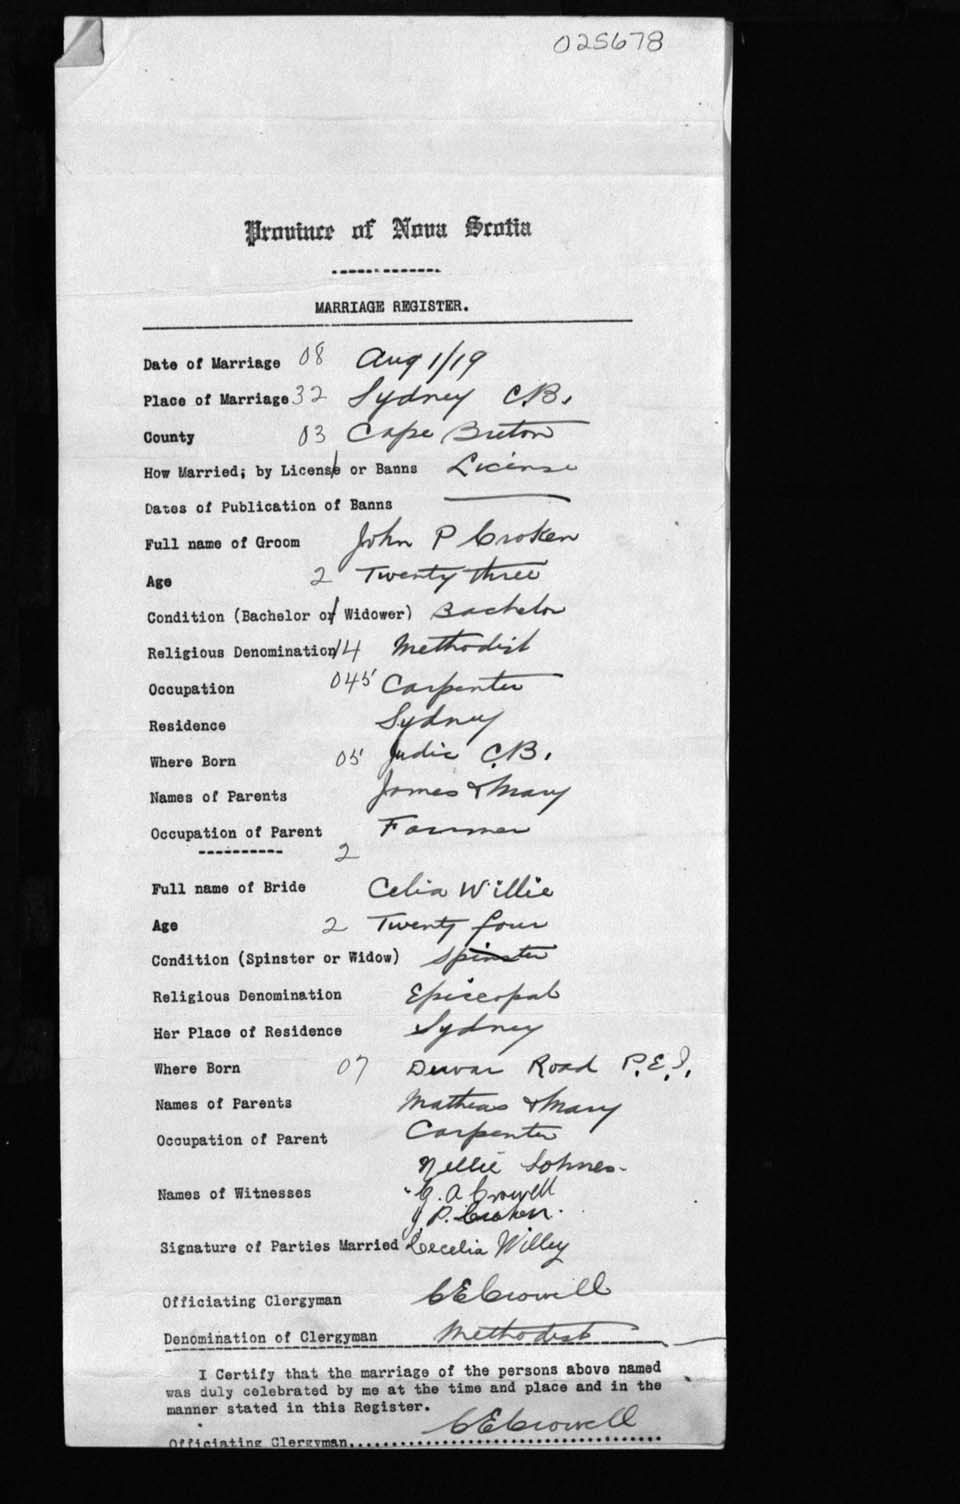 025678
Province of Nova Scotia
MARRIAGE REGISTER.
Date of Marriage 08 Aug 1/19
Place of Marriage 32 Sydney C.B.
County 03 Cape Breton
How Married; by License or Banns License
Dates of Publication of Banns
Full name of Groom John P Croken
Age 2 Twenty three
Condition (Bachelor or Widower) Bachelor
Religious Denomination 14 Methodist
Occupation 045 Carpenter
Residence Sydney
Where Born 05 Judic C.B.
Names of Parents James & Mary
Occupation of Parent Farmer
2
Full name of Bride Celia Willie
Age 2 Twenty four
Condition (Spinster or Widow) Spinster
Religious Denomination Episcopal
Her Place of Residence Sydney
Where Born 07 Road P.E.I.
Names of Parents Mathias & Mary
Occupation of Parent Carpenter
Nellie
Names of Witnesses G. A Crowell
J. P. Croken.
Signature of Parties Married Cecelia Willey
Officiating Clergyman C E Crowell
Denomination of Clergyman Methodist
I Certify that the marriage of the persons above named
was duly celebrated by me at the time and place and in the
manner stated in this Register.
C E Crowell
Officiating Clergyman